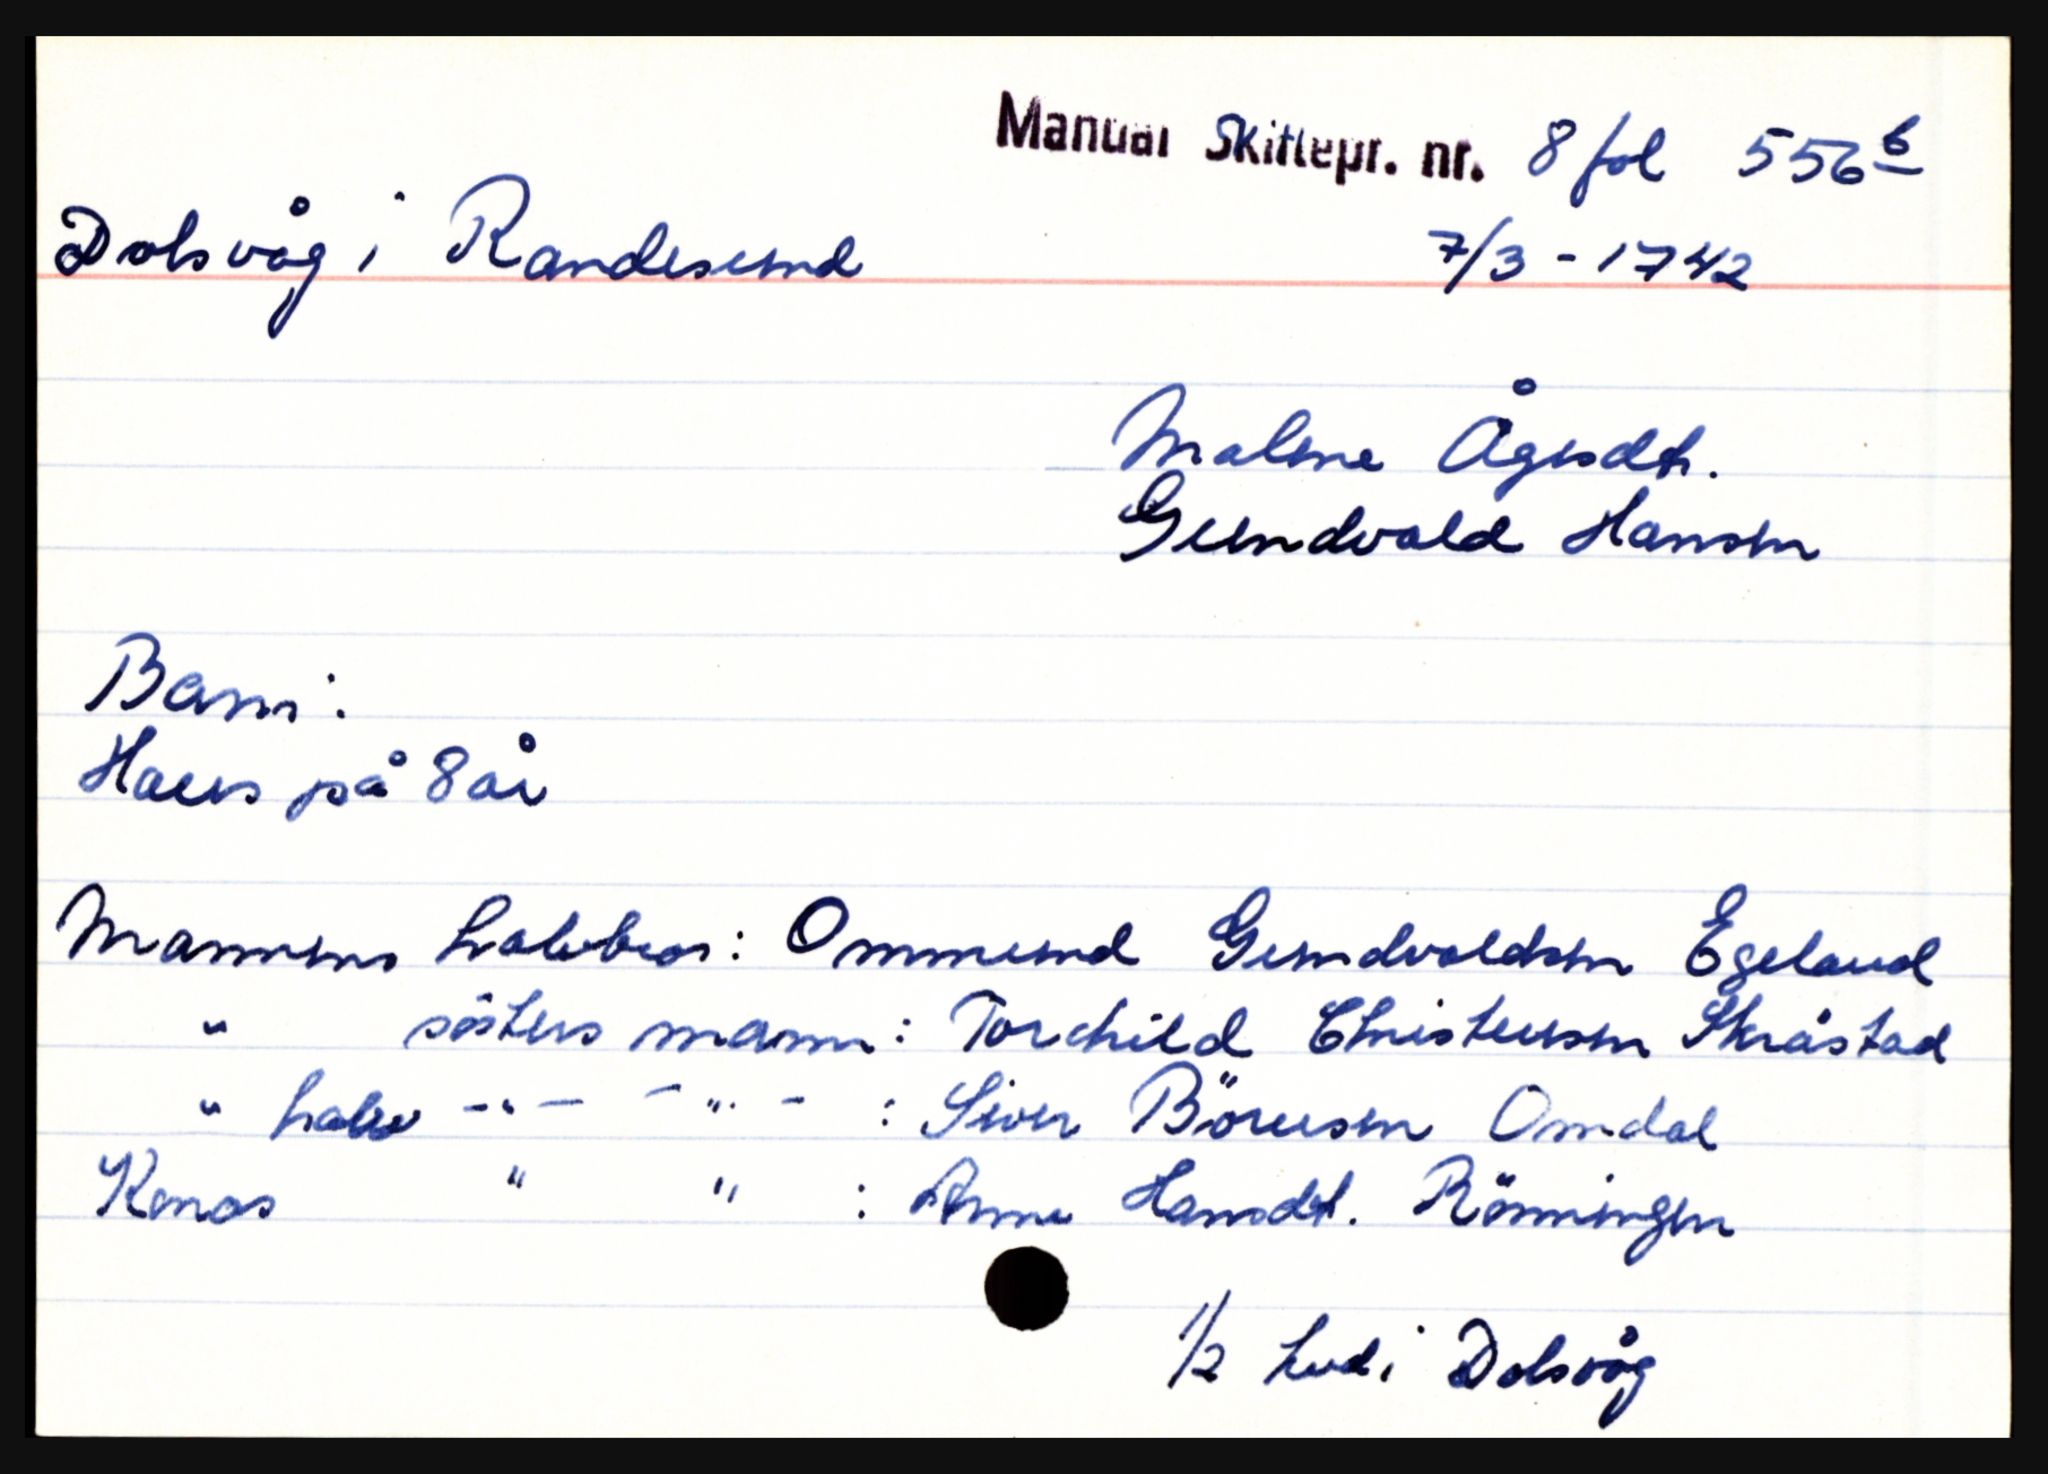 Manual Skiftepr. nr. 8 fol 556 b
Dolsvåg i Randesund 7/3 - 1742
Malene Ågesdt.
Gundvald Hansen
Barn:
Hans på 8 år
Mannens halvbror: Ommund Gundvaldsen Egeland
" søsters mann: Torchild Christensen Skråstad
" halv -"- -"- : Siver Börresen Omdal
Konas " " : Anne Hansdt. Rönningen
1/2 hud i Dolsvåg